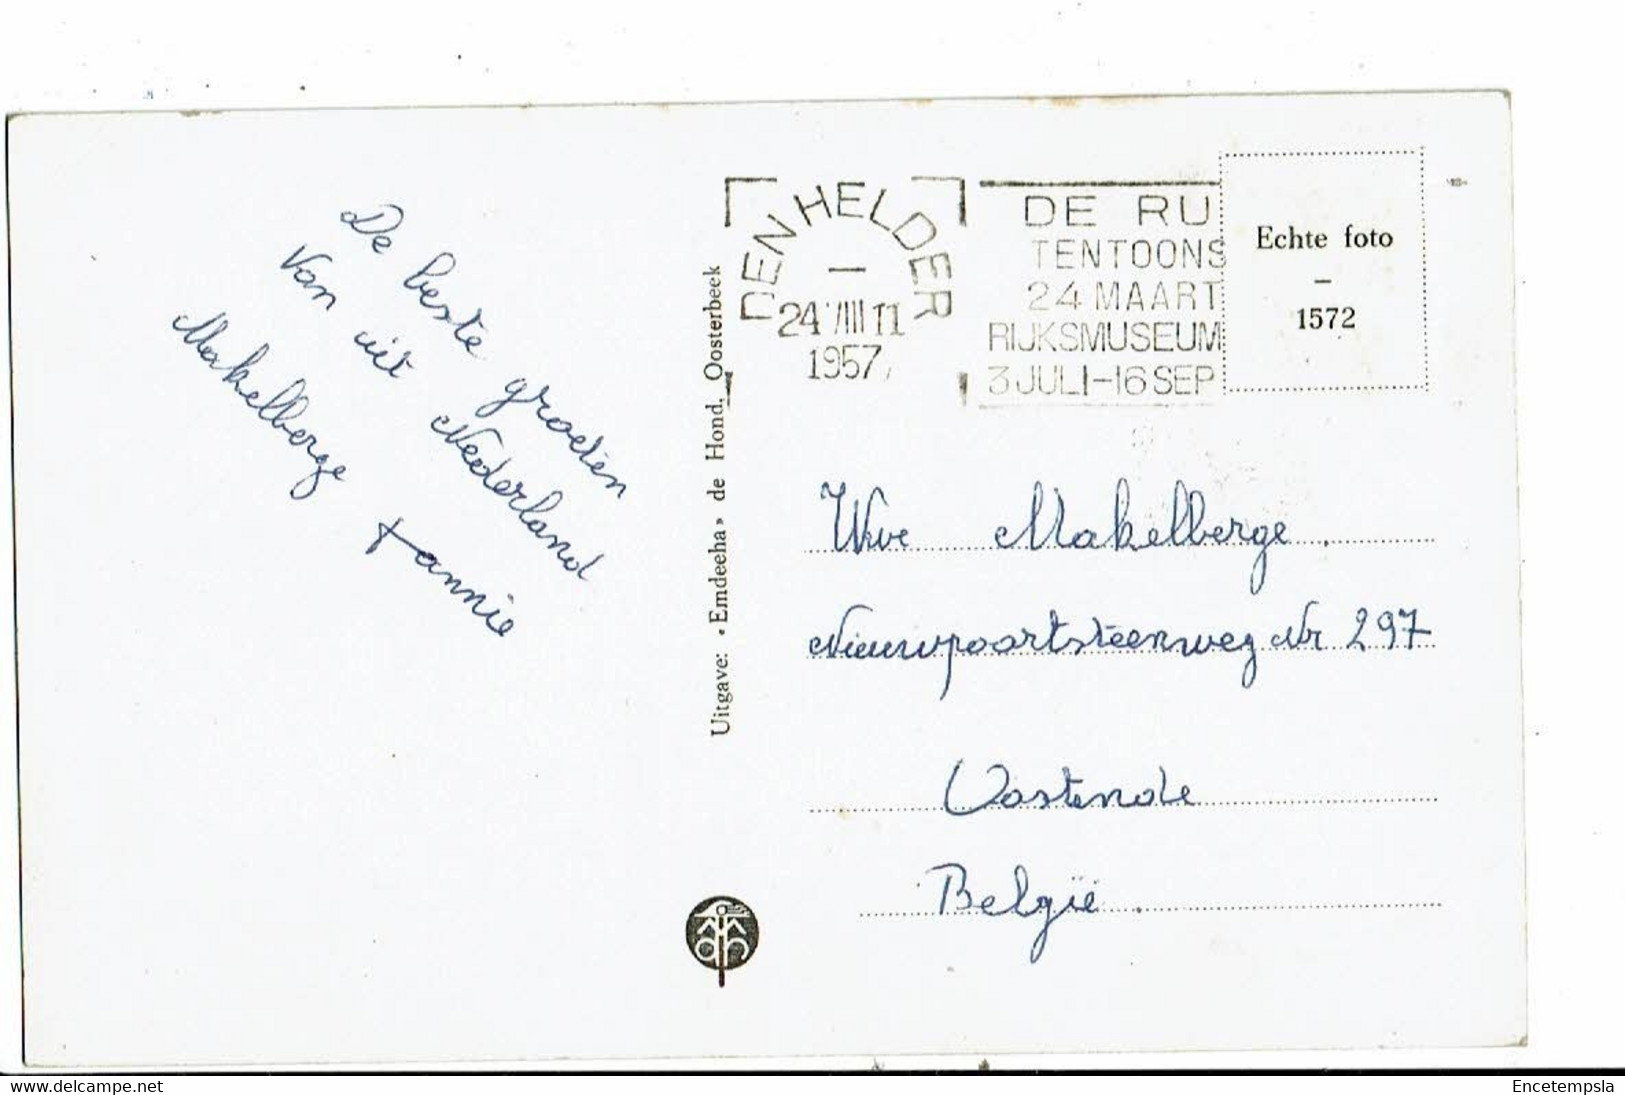 De beste groeten
Van uit Nederland
Makelberge Fannie
Uitgave: «Emdeeha» de Hond, Oosterbeek
DEN HELDER
24 VIII 11
1957
DE RU
TENTOONS
24 MAART
RIJKSMUSEUM
3 JULI-16 SEP
Echte foto
–
1572
Wwe Makelberge
Nieuwpoortsteenweg Nr 297
Oostende
België
delcampe.net
Encetempsla